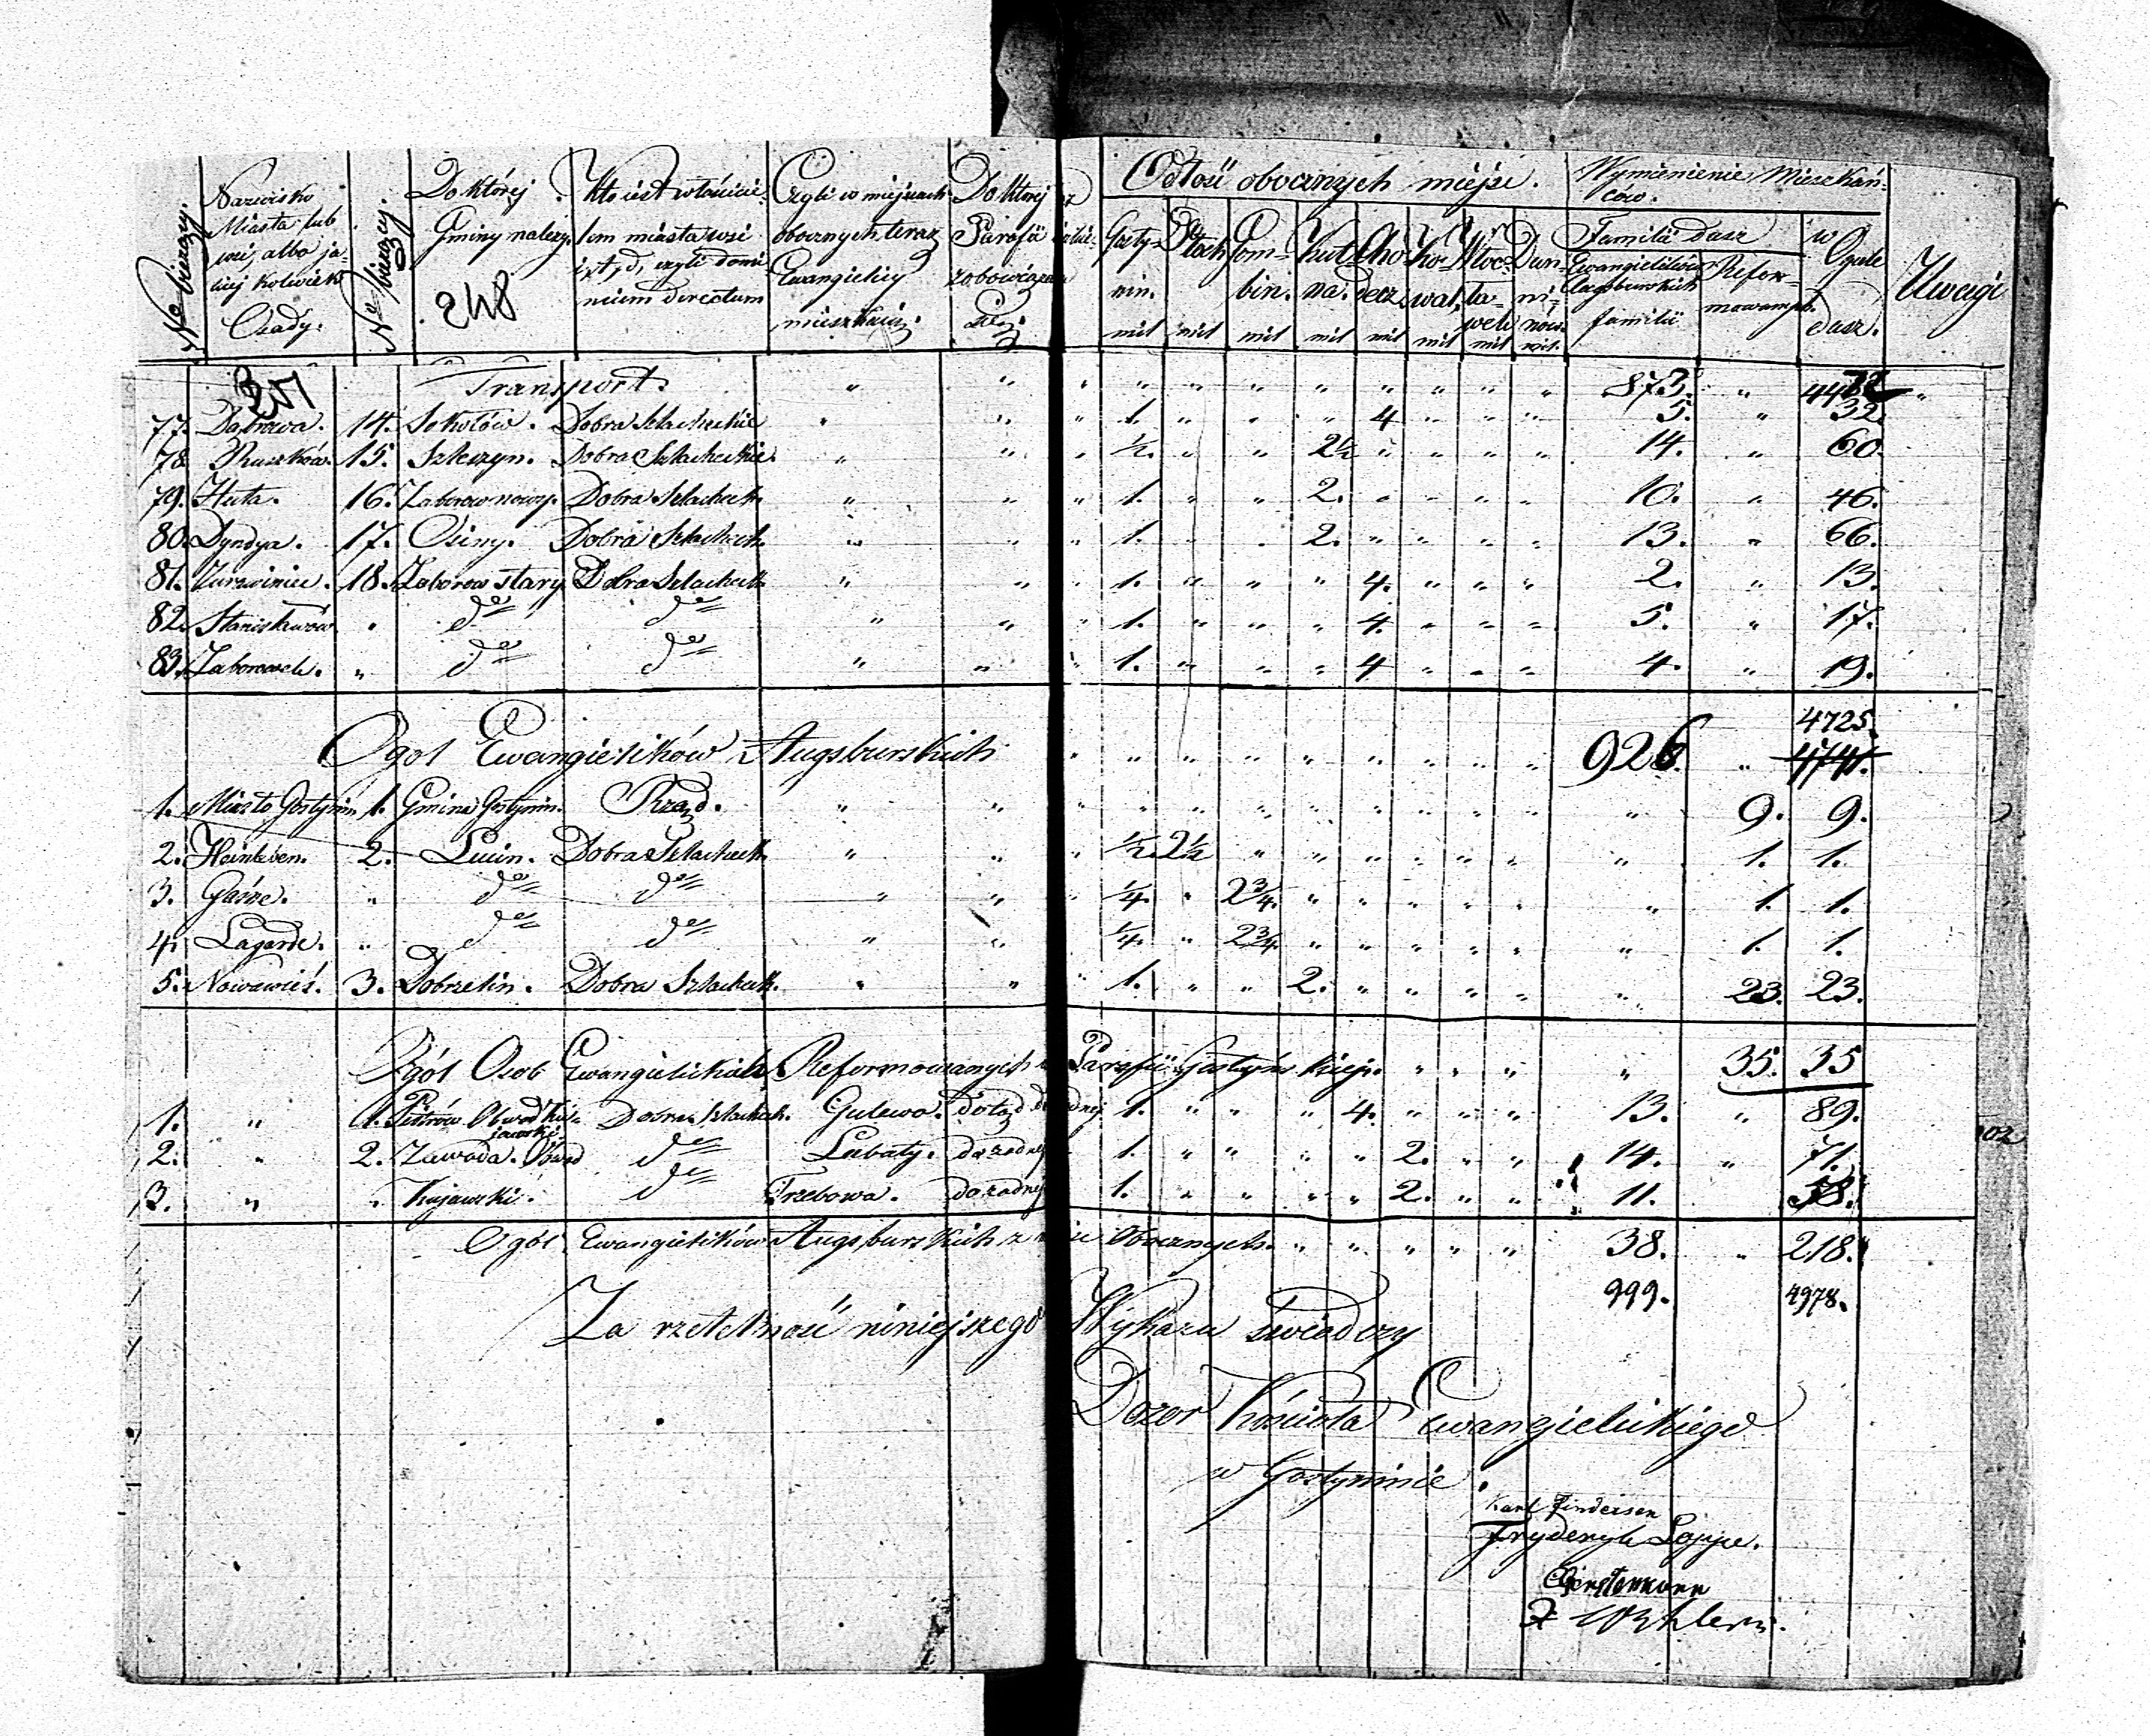 No bieżący.
Nazwisko Miasta lub wsi, albo jakiej kolwiek Osady.
No bieżący.
Do której Gminy należy.
248
Kto iest właścicielem miasta wsi
Czyli w miejscach obocznych teraz Ewangielicy mieszkaią.
Do ktorej Parafii
Odłość obocznych miejsc.
Gostynin. mil
Płock mil
Gombin. mil
Kutna. mil
Chodecz mil
Kowal, mil
Włocławek mil
Duninów. mil.
Wymienienie Mieszkańców.
Familii Dusz
Ewangielików Augsburskich familii
Reformowanych.
w Ogule Dusz.
Uwagi
Transport. " " " " " " " " " " " 873. " "
77. Dąbrowa. 14. Sokołów. Dobra Szlacheckie " " " 1. " " " 4 " " " 5. " 32.
78 Ruszków. 15. Szleszyn. Dobra Szlacheckie. " " " ½. " " 2½ " " " " 14. " 60.
79. Huta. 16. Zaborow nowy. Dobra Szlacheck. " " " 1. " " 2. " " " " 10. " 46.
80. Dyndya. 17. Osiny. Dobra Szlacheck. " " " 1. " " 2. " " " " 13. " 66.
81. Zurawiniec. 18. Zaborow stary Dobra Szlacheck. " " " 1. " " " 4. " " " 2. " 13.
82. Stanisławów " do do " " " 1. " " " 4. " " " 5. " 17.
83. Zaborowek. " do do " " " 1. " " " 4 " " " 4. " 19.
4725.
Ogol Ewangielików Augsburskich " " " " " " " " " 926. "
1. Miasto Gostynin 1. Gmina Gostynin. Rząd. " " " " " " " " " " " " 9. 9.
2. Heinleben. 2. Lucin. Dobra Szlacheck. " " " ½. 2½ " " " " " " " 1. 1.
3. Gaśne. " do do " " " ¼. " 2¾. " " " " " " 1. 1.
4. Lagarde. " do do " " " ¼. " 2¾. " " " " " " 1. 1.
5. Nowawieś. 3. Dobrzelin. Dobra Szlacheck. " " " 1. " " 2. " " " " " 23. 23.
Ogół Osob Ewangielickich Reformowanych Parafii Gostyńskiej. " " " " 35. 35
1. " 1. Dobra Szlacheck. Gulewo. dotąd 1. " " " 4. " " " 13. " 89.
2. " 2. Zawada. Obwod do Labaty. do żadnej 1. " " " " 2. " " 14. " 71.
3. " " Kujawski. do Trzebowa. do żadnej 1. " " " " 2. " " 11. 58.
Ogół Ewangielików Augsburskich z Obocznych. " " " " " 38. " 218.
999. 4978.
Za rzetelność niniejszego Wykazu świadczy
Dozor Kościoła Ewangielickiego
w Gostyninie.
Karl Findeisen
Fryderyk Loppe.
Gerstemann